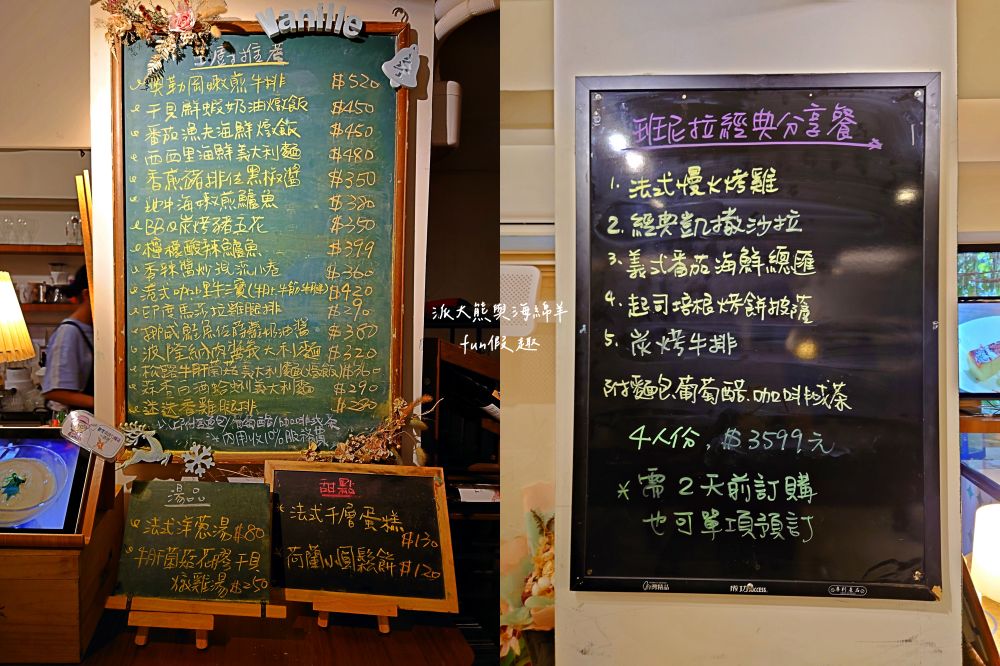 Vanille
主廚推薦
奧勒岡嫩煎牛排 $520
干貝鮮蝦奶油燉飯 $450
番茄漁夫海鮮燉飯 $450
西西里海鮮義大利麵 $480
香煎豬排佐黑椒醬 $350
地中海嫩煎鱸魚 $380
BBQ炭烤豬五花 $350
檸檬酸辣鱸魚 $399
香辣醬炒浪流小卷 $360
港式咖哩牛三寶(牛肚牛筋牛腱) $420
印度馬莎拉雞腿排 $290
$380
波隆納肉醬義大利麵 $320
松露牛肝菌菇義大利麵(燉飯) $360
義大利麵 $290
迷迭香雞腿排 $280
以上附麵包/葡萄醋/咖啡或茶
※內用收10%服務費
湯品
法式洋蔥湯 $80
牛肝菌菇石磨干貝
燉雞湯 $250
甜點
法式千層蛋糕
$130
荷蘭小圓鬆餅 $120
派大熊與海綿羊
fun假趣
班尼拉經典分享餐
1. 法式慢火烤雞
2. 經典凱撒沙拉
3. 義式番茄海鮮總匯
4. 起司培根烤餅披薩
5. 炭烤牛排
附麵包.葡萄醋.咖啡或茶
4人份, $3599元
* 需2天前訂購
也可單項預訂
成功 success